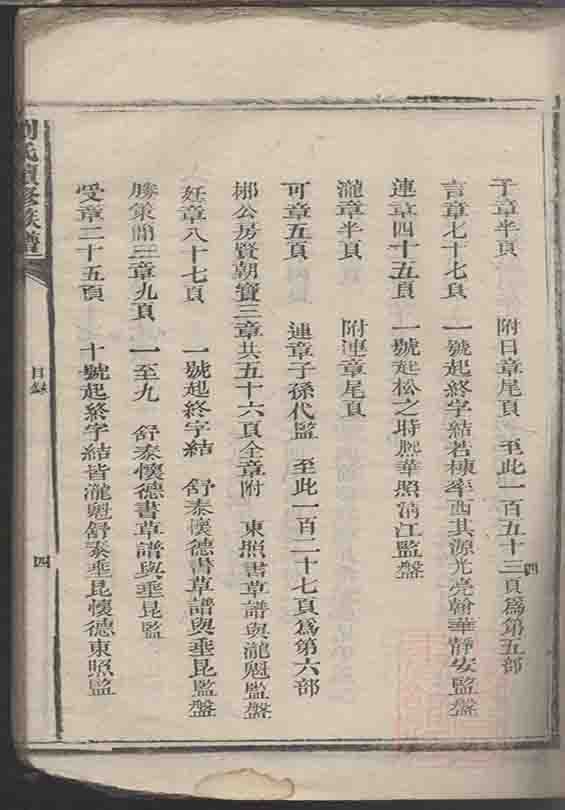 子章半頁 附日章尾頁 至此一百五十三頁為第五部
言章七十七頁 一號起終字結若棟率西其源光亮翰華靜安監盤
連章四十五頁 一號起松之時熙華照清江監盤
瀧章半頁 附連章尾頁
可章五頁 連章子孫代監 至此一百二十七頁為第六部
梛公房賢朝寶三章共五十六頁全章附 東照書草譜與瀧魁監盤
妊章八十七頁 一號起終字結 舒泰懷德書草譜與垂昆監盤
勝策開三章九頁 一至九 舒泰懷德書草譜與垂昆監
受章二十五頁 十號起終字結皆瀧魁舒泰垂昆懷德東照監
劉氏續修族譜
目錄
四
四